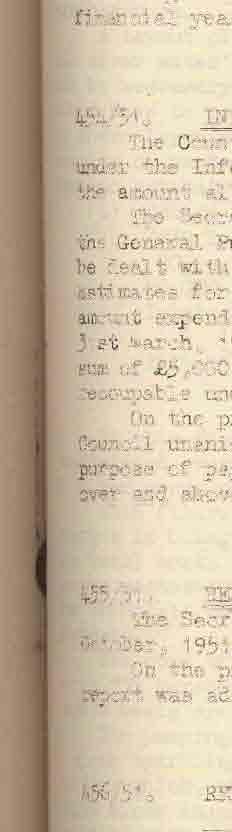 financial yea
454/51. IN
The Coun
under the Info
the amount al
The Secre
the General Pu
be dealt with
estimates for
amount expend
31st March, 1
sum of £5,000
recoupable un
On the p
Council unani
purpose of pa
over and above
455/51. RE
The Secr
October, 1951
On the p
report was ad
456/51. RE